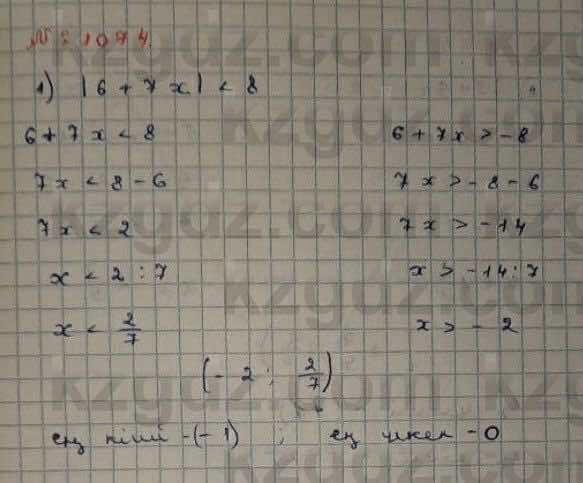 № : 1074.
1) |6 + 7x| < 8
6 + 7x < 8    6 + 7x > -8
7x < 8 - 6    7x > -8 - 6
7x < 2    7x > -14
x < 2 : 7    x > -14 : 7
x < 2/7    x > - 2
(- 2 ; 2/7)
ең кіші -(-1) ; ең үлкен - 0
kzgdz.com